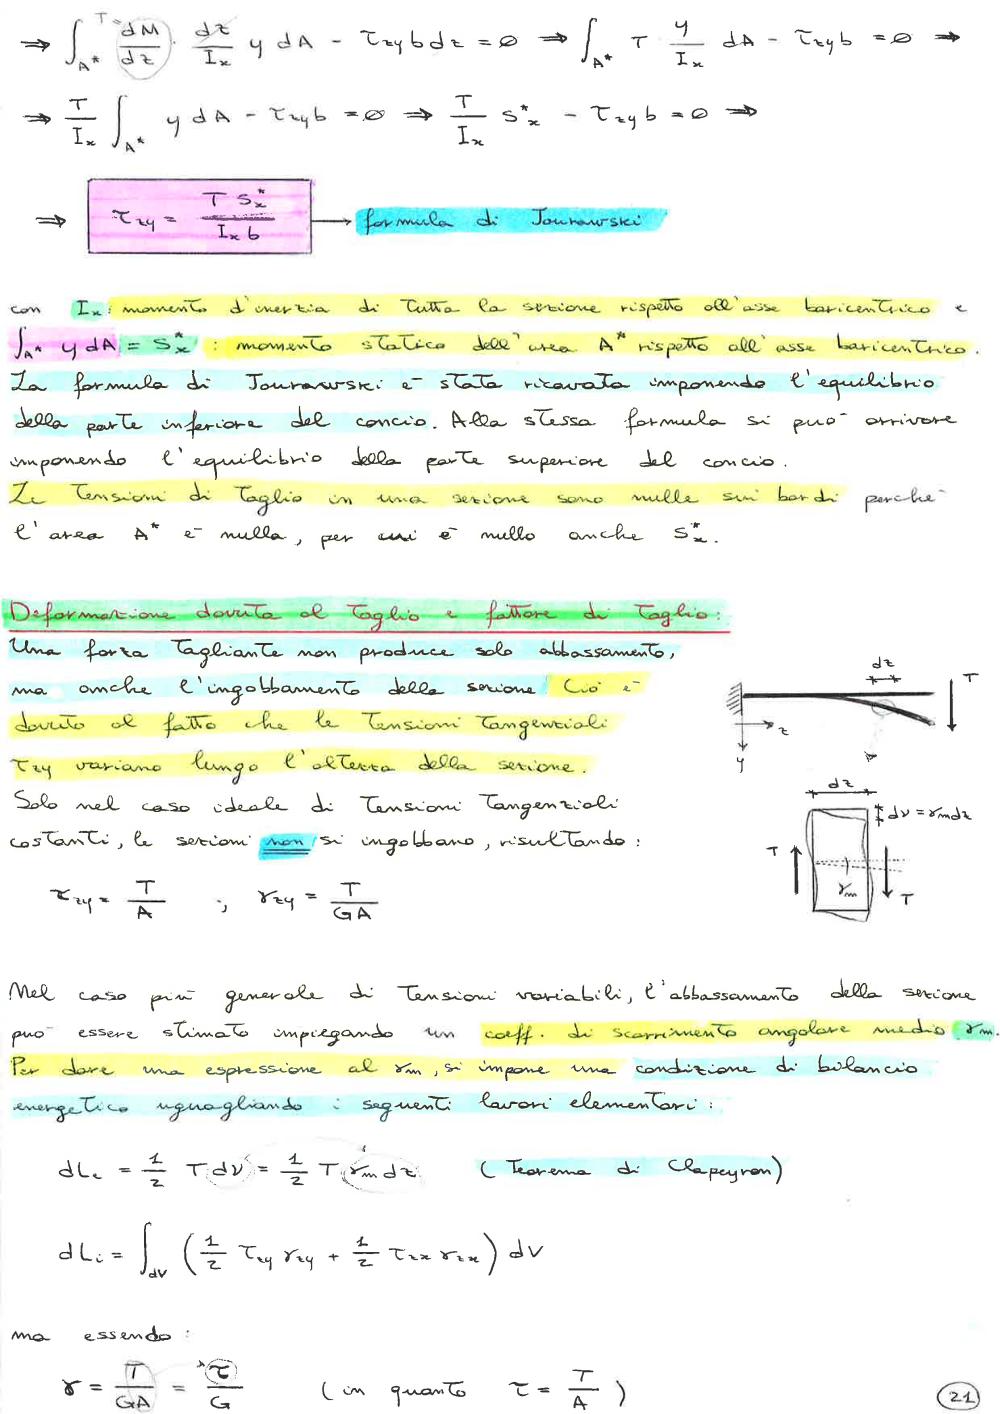 ⇒ ∫_{A*} T = dM/dz · dz/Iₓ y dA − τ_zy b dz = 0 ⇒ ∫_{A*} T y/Iₓ dA − τ_zy b = 0 ⇒
⇒ T/Iₓ ∫_{A*} y dA − τ_zy b = 0 ⇒ T/Iₓ S*ₓ − τ_zy b = 0 ⇒
⇒ τ_zy = T S*ₓ / Iₓ b → formula di Jourawski
con Iₓ: momento d'inerzia di tutta la sezione rispetto all'asse baricentrico e
∫_{A*} y dA = S*ₓ : momento statico dell'area A* rispetto all'asse baricentrico.
La formula di Jourawski è stata ricavata imponendo l'equilibrio
della parte inferiore del concio. Alla stessa formula si può arrivare
imponendo l'equilibrio della parte superiore del concio.
Le tensioni di taglio in una sezione sono nulle sui bordi perchè
l'area A* è nulla, per cui è nullo anche S*ₓ.
Deformazione dovuta al taglio e fattore di taglio:
Una forza tagliante non produce solo abbassamento,
ma anche l'ingobbamento della sezione Ciò è
dovuto al fatto che le tensioni tangenziali
τ_zy variano lungo l'altezza della sezione.
dz
T
z
y
Solo nel caso ideale di tensioni tangenziali
costanti, le sezioni non si ingobbano, risultando:
dz
dv = γ_m dz
T
γ_m
T
τ_zy = T/A ; γ_zy = T/GA
Nel caso più generale di tensioni variabili, l'abbassamento della sezione
può essere stimato impiegando un coeff. di scorrimento angolare medio γ_m.
Per dare una espressione al γ_m, si impone una condizione di bilancio
energetico uguagliando i seguenti lavori elementari:
dLe = 1/2 T dv = 1/2 T γ_m dz (Teorema di Clapeyron)
dLi = ∫_{dV} (1/2 τ_zy γ_zy + 1/2 τ_zx γ_zx) dV
ma essendo:
γ = T/GA = τ/G (in quanto τ = T/A)
21